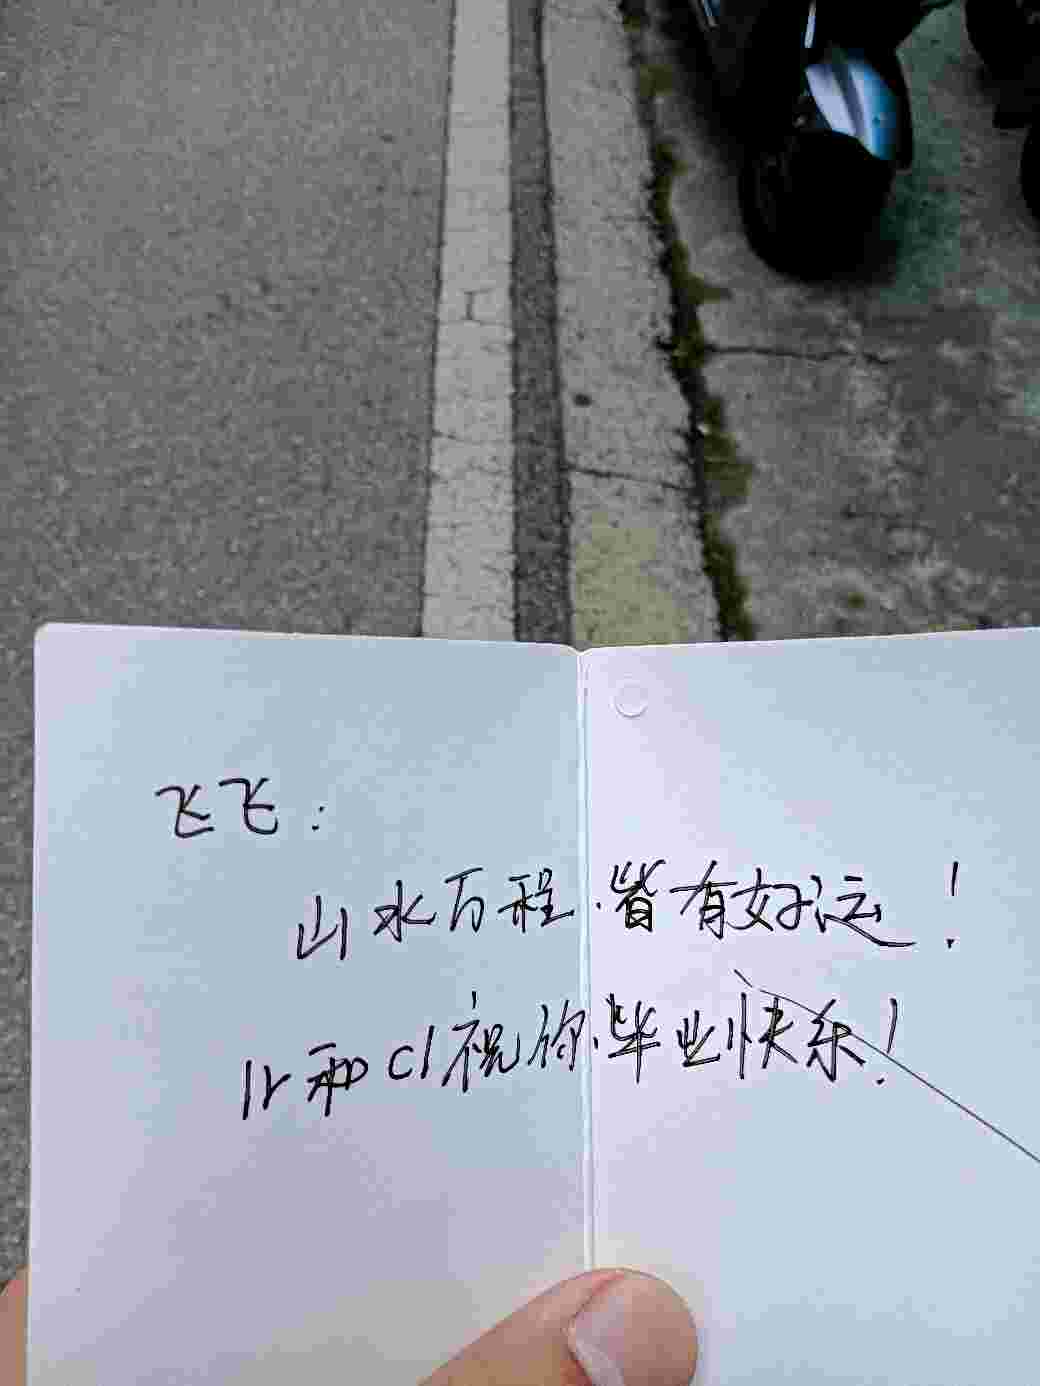 飞飞：
山水万程.皆有好运！
lr和cl祝你.毕业快乐！